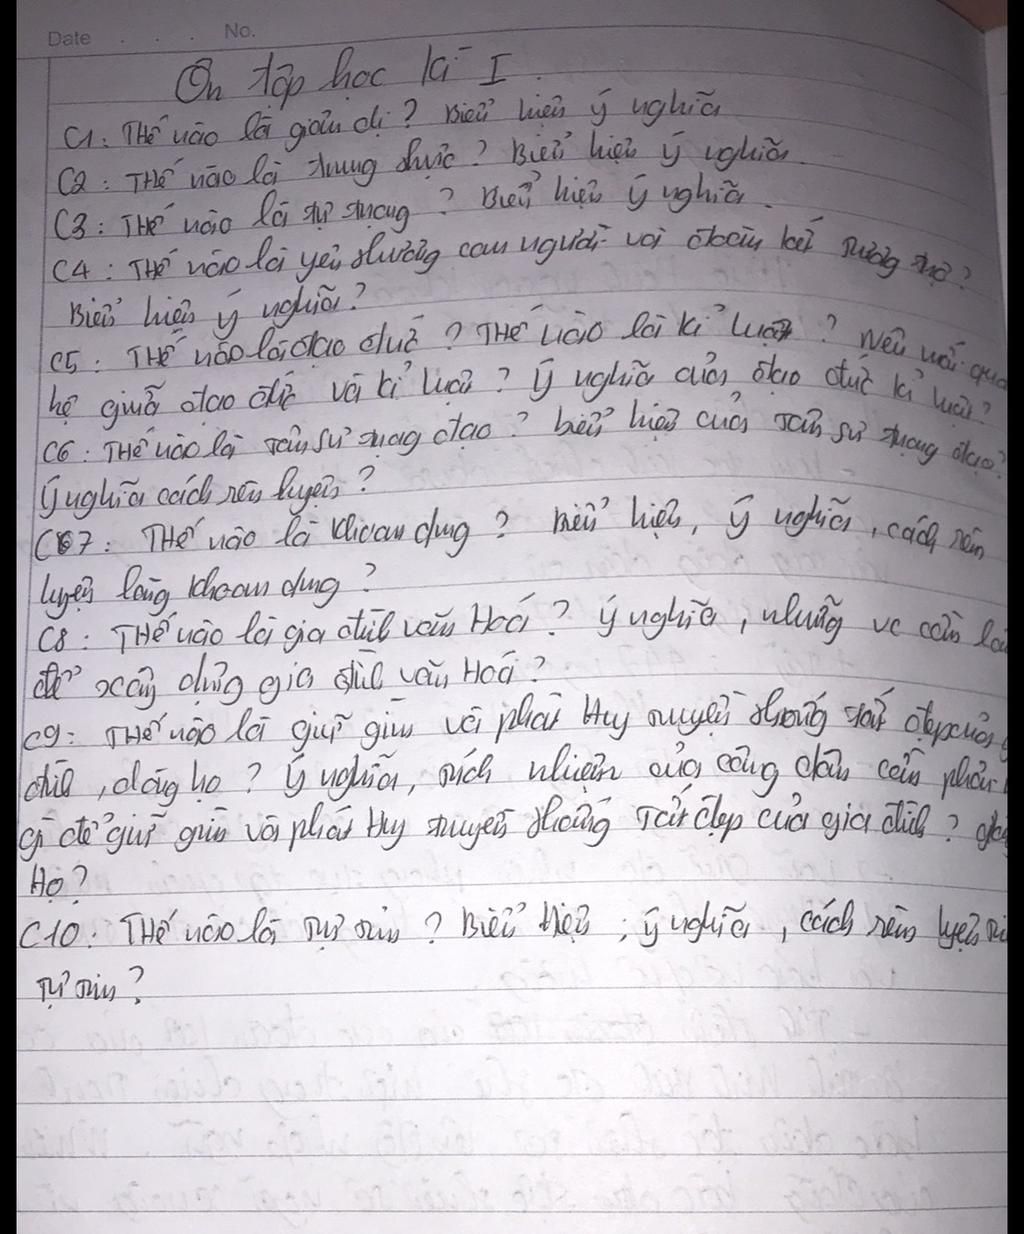 Date . . . No.
Ôn tập học kì I
C1: Thế nào là giản dị? Biểu hiện ý nghĩa
C2: Thế nào là trung thực? Biểu hiện ý nghĩa.
C3: Thế nào là tự trọng? Biểu hiện ý nghĩa.
C4: Thế nào là yêu thương con người và đoàn kết tương trợ?
Biểu hiện ý nghĩa?
C5: Thế nào là đạo đức? Thế nào là kỉ luật? Nêu mối qua
hệ giữa đạo đức và kỉ luật? Ý nghĩa của đạo đức kỉ luật?
C6: Thế nào là tôn sư trọng đạo? biểu hiện của tôn sư trọng đạo?
Ý nghĩa cách rèn luyện?
C7: Thế nào là khoan dung? Biểu hiện, ý nghĩa, cách rèn
luyện lòng khoan dung?
C8: Thế nào là gia đình văn Hoá? Ý nghĩa, những vc cần là
để xây dựng gia đình văn Hoá?
C9: Thế nào là giữ gìn và phát Huy truyền thống tốt đẹp của
đình, dòng họ? Ý nghĩa, trách nhiệm của công dân cần phải
gì để giữ gìn và phát Huy truyền thống tốt đẹp của gia đình?
Họ?
C10: Thế nào là tự tin? Biểu hiện; ý nghĩa, cách rèn lyện
tự tin?